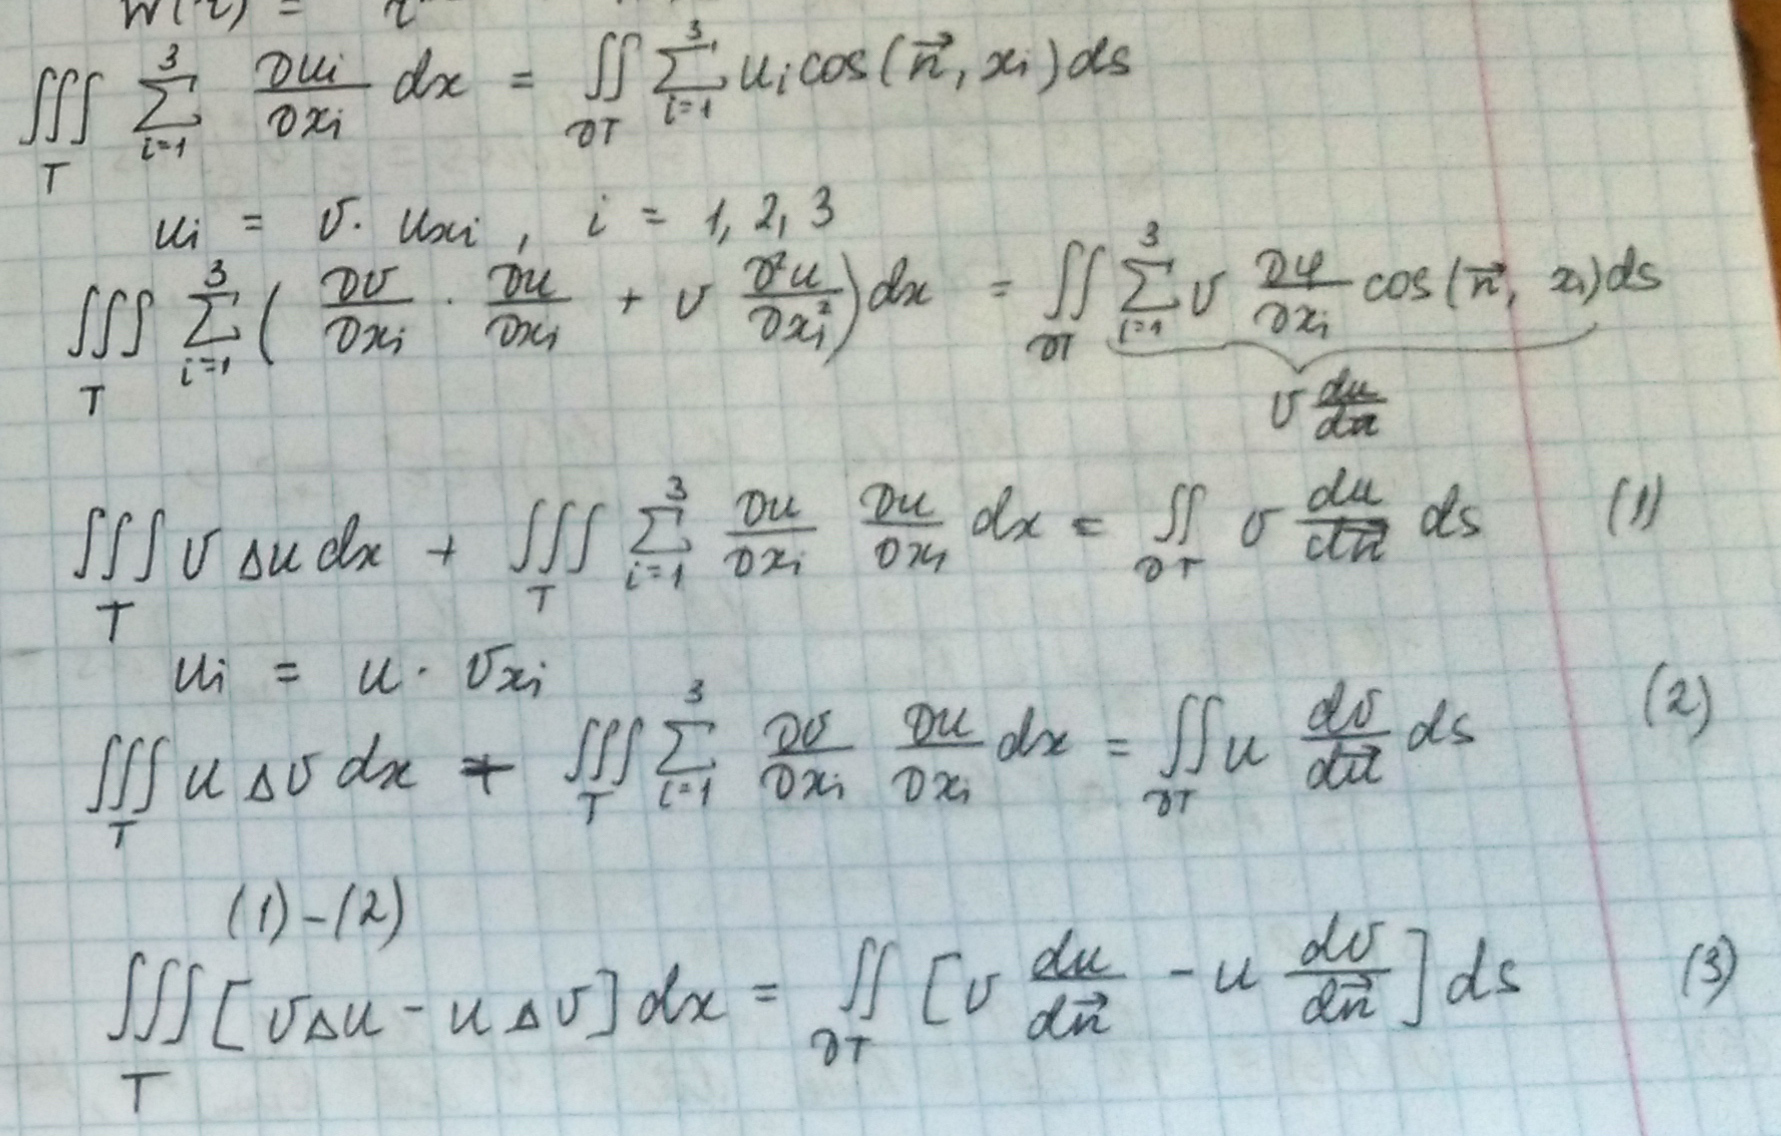 W(r) =
∭_T ∑_{i=1}^{3} ∂u_i/∂x_i dx = ∬_{∂T} ∑_{i=1}^{3} u_i cos(n⃗, x_i) ds
u_i = v · u_{x_i}, i = 1, 2, 3
∭_T ∑_{i=1}^{3} ( ∂v/∂x_i · ∂u/∂x_i + v ∂²u/∂x_i² ) dx = ∬_{∂T} ∑_{i=1}^{3} v ∂φ/∂x_i cos(n⃗, x_i) ds
v du/dn
∭_T v Δu dx + ∭_T ∑_{i=1}^{3} ∂u/∂x_i ∂u/∂x_i dx = ∬_{∂T} v du/dn⃗ ds (1)
u_i = u · v_{x_i}
∭_T u Δv dx + ∭_T ∑_{i=1}^{3} ∂v/∂x_i ∂u/∂x_i dx = ∬_{∂T} u dv/dn⃗ ds (2)
(1) - (2)
∭_T [ v Δu - u Δv ] dx = ∬_{∂T} [ v du/dn⃗ - u dv/dn⃗ ] ds (3)